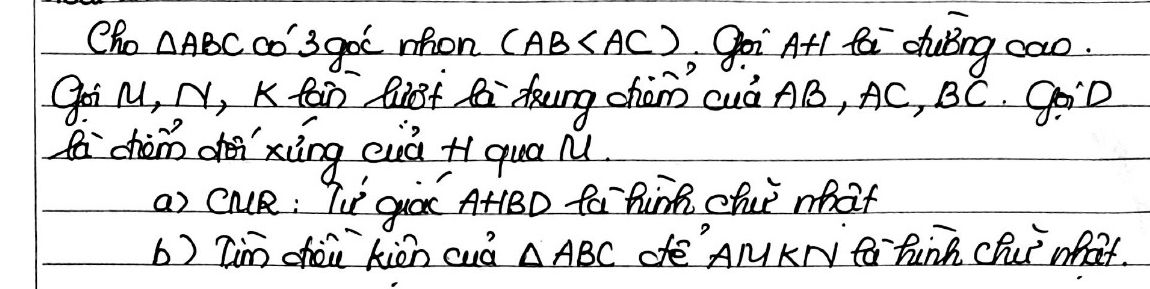 Cho △ABC có 3 góc nhọn (AB < AC). Gọi AH là đường cao.
Gọi M, N, K lần lượt là trung điểm của AB, AC, BC. Gọi D
là điểm đối xứng của H qua M.
a) CMR: Tứ giác AHBD là hình chữ nhật
b) Tìm điều kiện của △ABC để AMKN là hình chữ nhật.